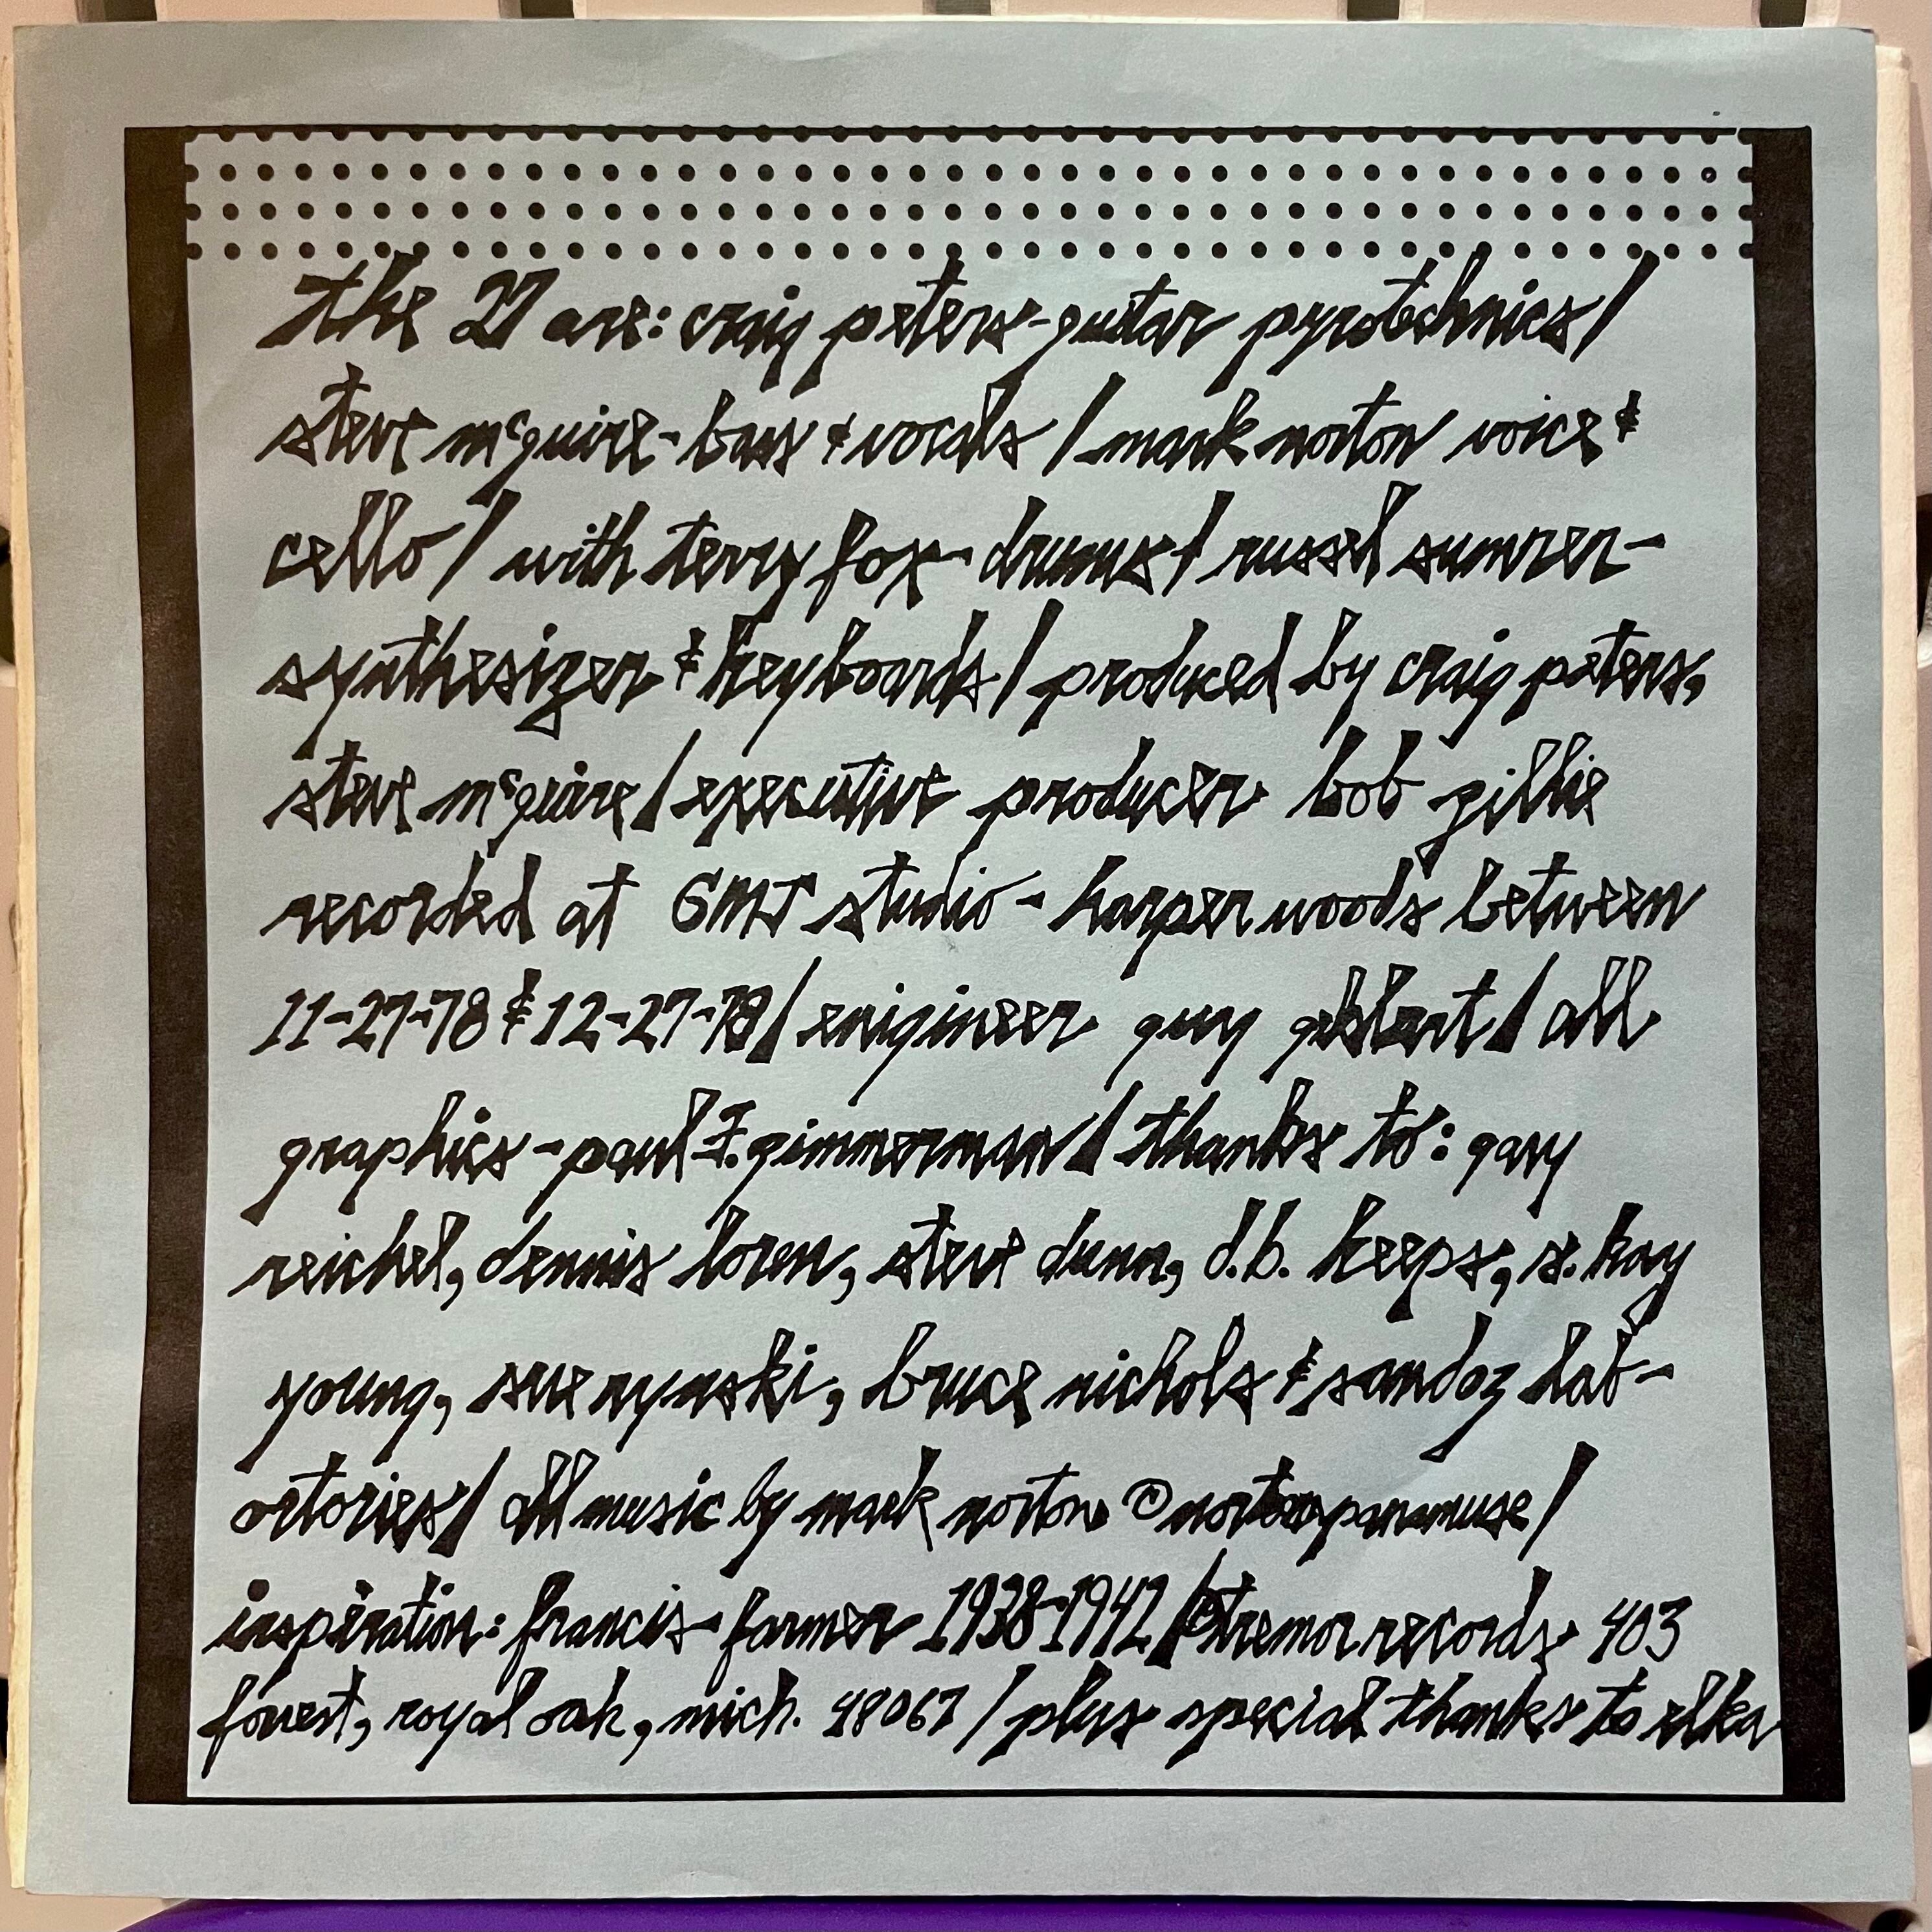 the 27 are: craig peters-guitar pyrotechnics/
steve mcguire-bass & vocals / mark norton voice &
cello / with terry fox-drums / russel sumner-
synthesizer & keyboards / produced by craig peters,
steve mcguire / executive producer bob zillie
recorded at GMT studio - harper woods between
11-27-78 & 12-27-78 / engineer guy
all
graphics - paul F. zimmerman / thanks to: gary
reichel, dennis loren, steve dunn, d.b. keeps, s. kay
young, sue rynski, bruce nichols & sandoz lab-
ortories / all music by mark norton ©
inspiration: francis farmer 1938-1942 / tremor records 403
forest, royal oak, mich. 48067 / plus special thanks to elka